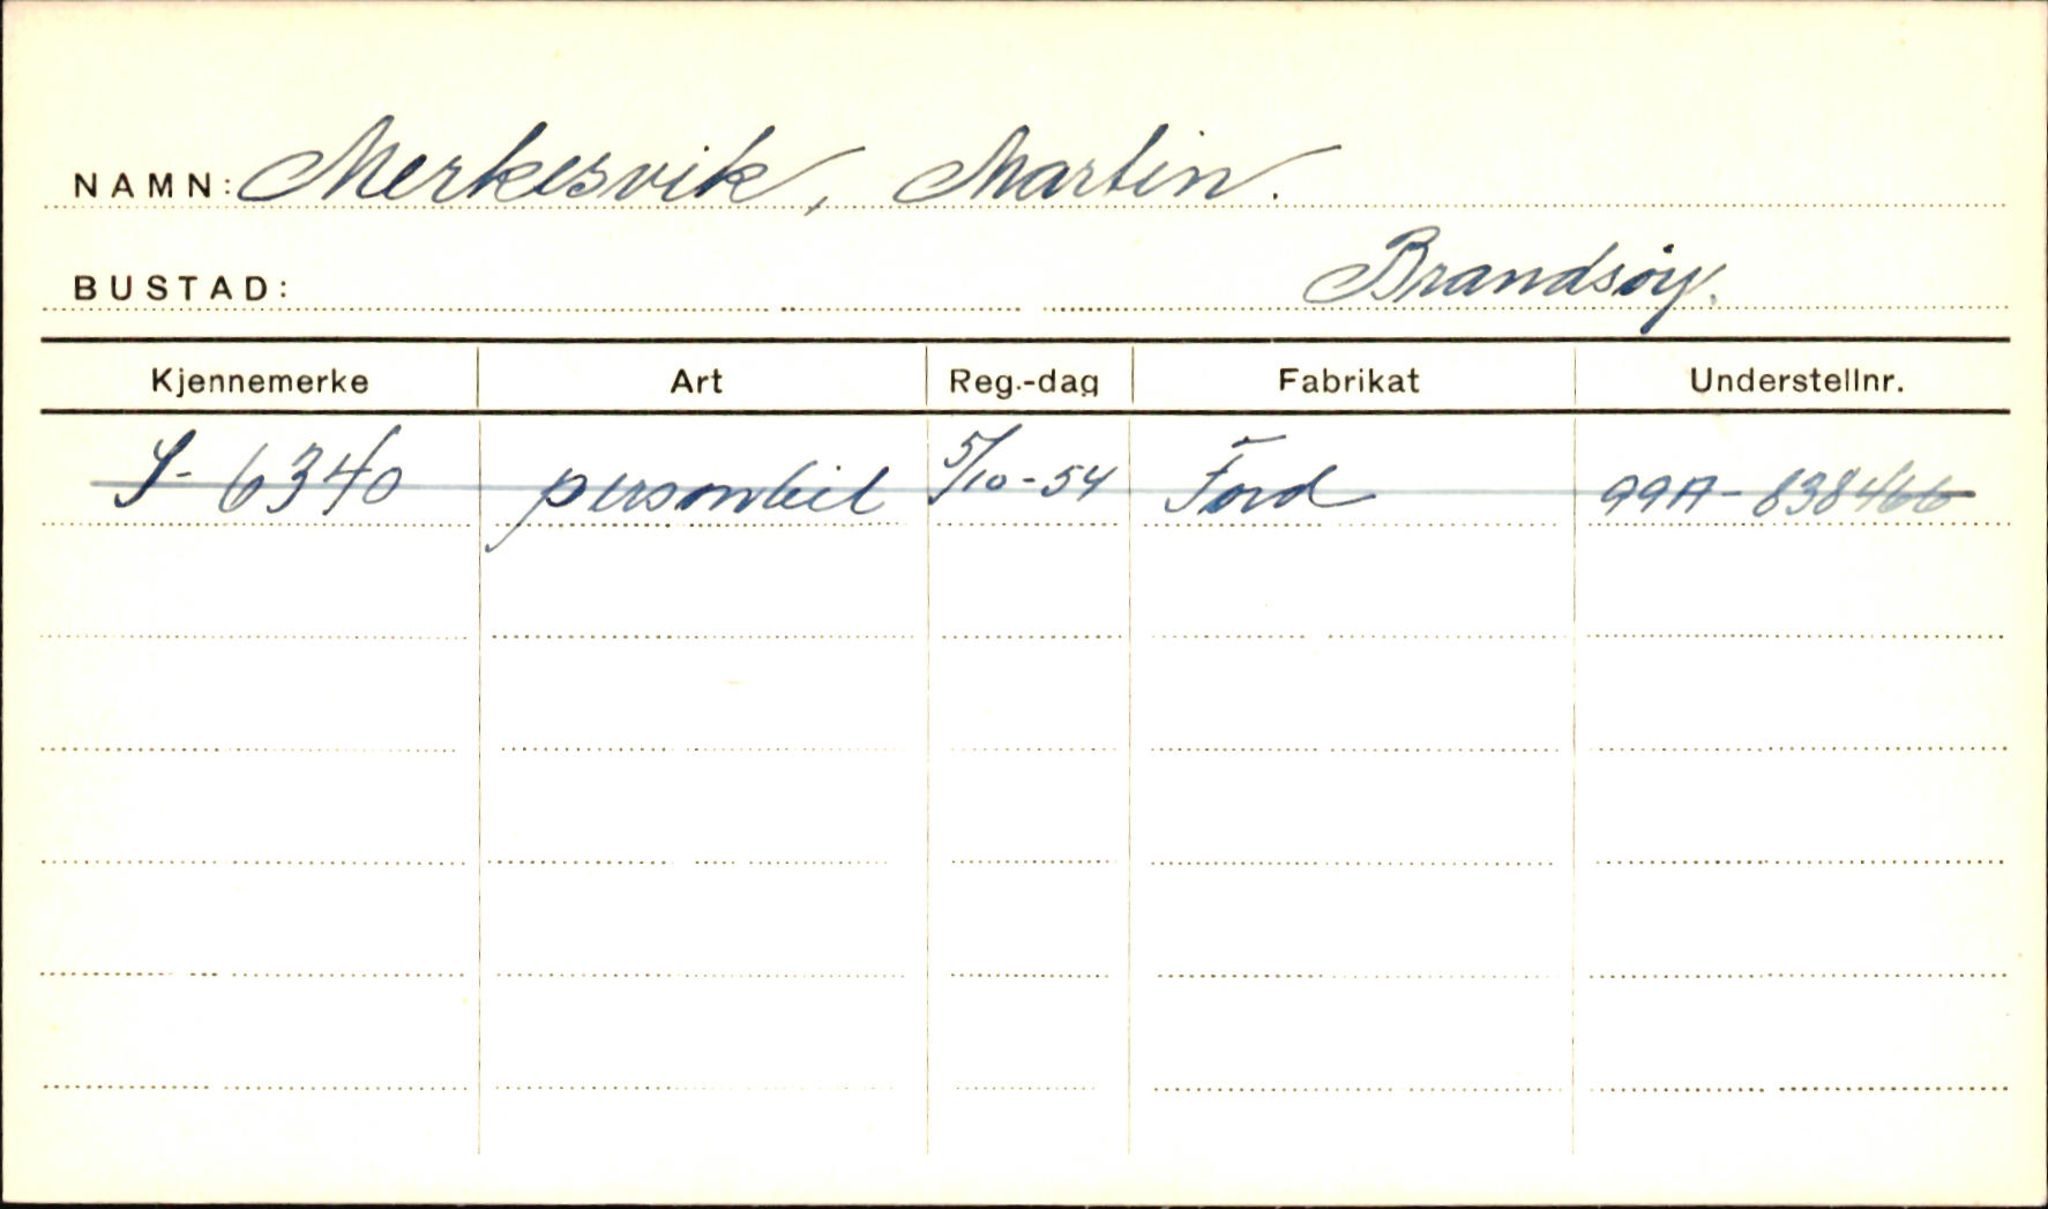 NAMN: Merkesvik, Martin.
BUSTAD: Brandsøy.
Kjennemerke Art Reg.-dag Fabrikat Understellnr.
S- 6340 personbil 5/10-54 Ford 99A-838466